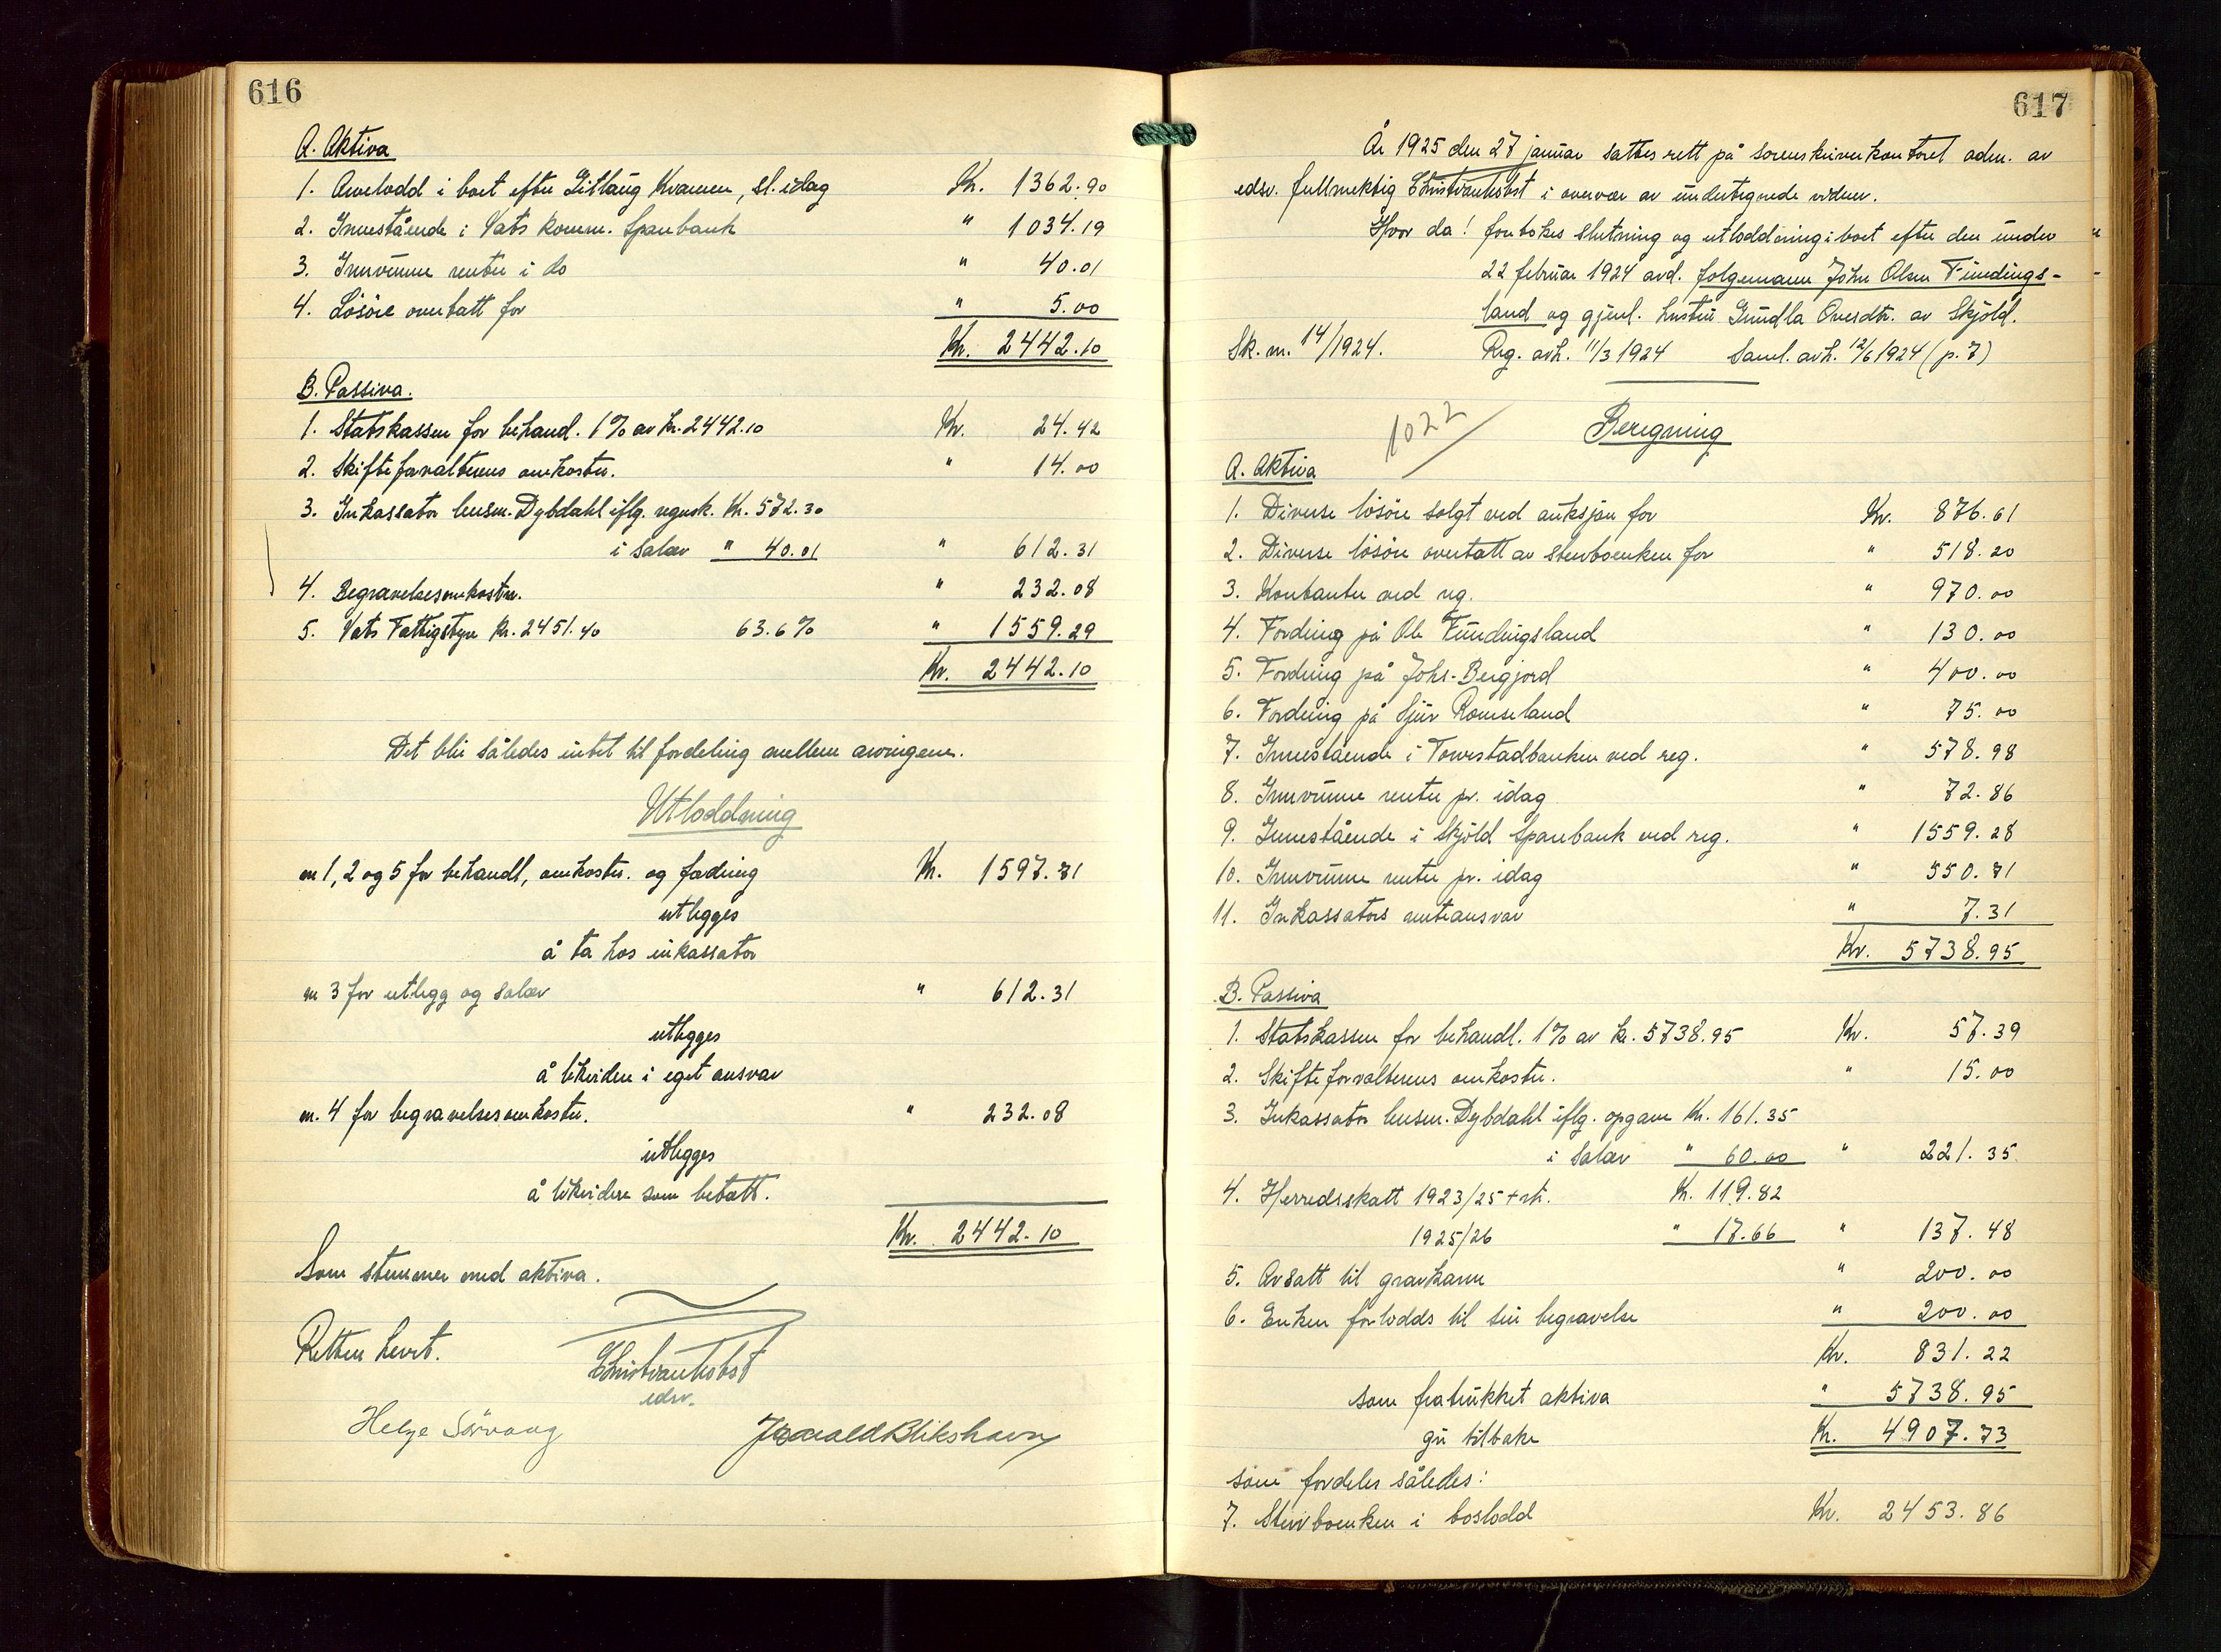 616
A. Aktiva
1. Arvelodd i boet efter Gitlaug Kvamen, sl. idag Kr. 1362.90
2. Innestående i Vats komm. Sparebank " 1034.19
3. Innvunne renter i do " 40.01
4. Lösöre overtatt for " 5.00
Kr. 2442.10
B. Passiva.
1. Statskassen for behandl. 1% av kr. 2442.10 Kr. 24.42
2. Skifteforvalterens omkostn. " 14.00
3. Inkassator lensm. Dybdahl iflg. regnsk. Kr. 572.30
i salær " 40.01 " 612.31
4. Begravelsesomkostn. " 232.08
5. Vats Fattigstyre Kr. 2451.40 63.6% " 1559.29
Kr. 2442.10
Det blir således intet til fordeling mellem arvingene.
Utloddning
nr 1, 2 og 5 for behandl, omkostn. og fordring Kr. 1597.71
utlegges
å ta hos inkassator
nr 3 for utlegg og salær " 612.31
utlegges
å likvidere i eget ansvar
nr. 4 for begravelsesomkostn. " 232.08
utlegges
å likvidere som betalt.
Kr. 2442.10
Som stemmer med aktiva.
Retten hevet.
Christian Lobst
edsv.
Helge Sörvaag Harald Blikshavn
617
År 1925 den 27 januar sattes rett på sorenskriverkontoret adm. av
edsv. fullmektig Christian Lobst i overvær av undertegnede vidner.
Hvor da! foretokes slutning og utloddning i boet efter den under
22 februar 1924 avd. folgemann John Olsen Fundings-
land og gjenl. hustru Gundla Oversdtr. av Skjöld.
Sk. nr. 14/1924. Reg. avh. 11/3 1924 Saml. avh. 12/6 1924 (p. 7)
1022
Beregning
A. Aktiva
1. Diverse lösöre solgt ved auksjon for Kr. 876.61
2. Diverse lösöre overtatt av stervboenken for " 518.20
3. Kontanter ved reg. " 970.00
4. Fordring på Ole Fundingsland " 130.00
5. Fordring på Johs. Bergjord " 400.00
6. Fordring på Sjur Romseland " 75.00
7. Innestående i Torvestadbanken ved reg. " 578.98
8. Innvunne renter pr. idag " 72.86
9. Innestående i Skjöld Sparebank ved reg. " 1559.28
10. Innvunne renter pr. idag " 550.71
11. Inkassators renteansvar " 7.31
Kr. 5738.95
B. Passiva
1. Statskassen for behandl. 1% av kr. 5738.95 Kr. 57.39
2. Skifteforvalterens omkostn. " 15.00
3. Inkassator lensm. Dybdahl iflg. opgave Kr. 161.35
i salær " 60.00 " 221.35
4. Herredsskatt 1923/25 + rtr. Kr. 119.82
1925/26 " 17.66 " 137.48
5. Avsatt til gravkam " 200.00
6. Enken forlodds til sin begravelse " 200.00
Kr. 831.22
som fratrukket aktiva " 5738.95
gir tilbake Kr. 4907.73
som fordeles således:
7. Stervboenken i boslodd Kr. 2453.86